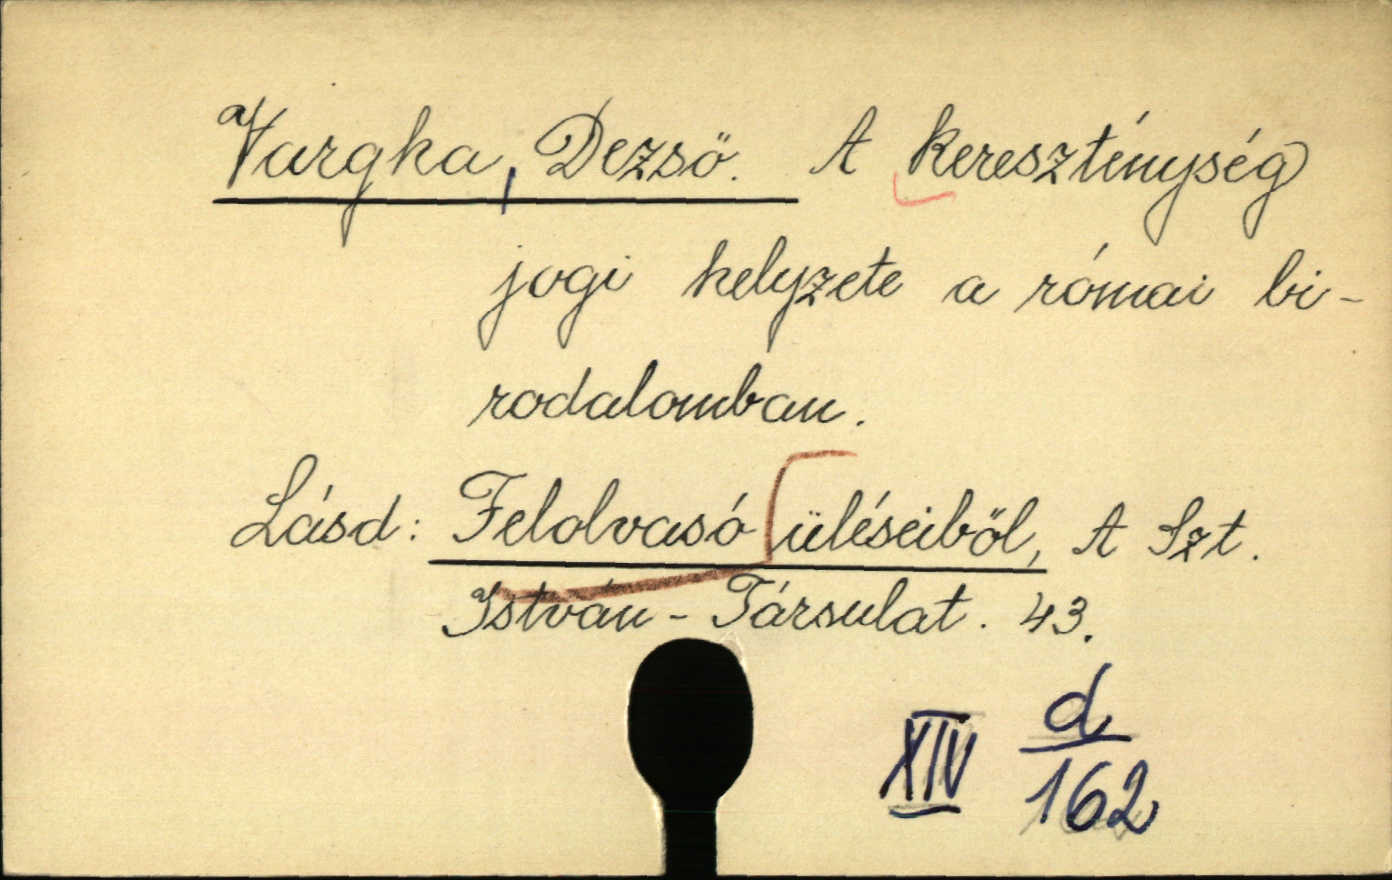 Vargha, Dezső. A kereszténység
jogi helyzete a római bi-
rodalomban.
Lásd: Felolvasó üléseiből, A Szt.
István-Társulat. 43.
XIV d/162